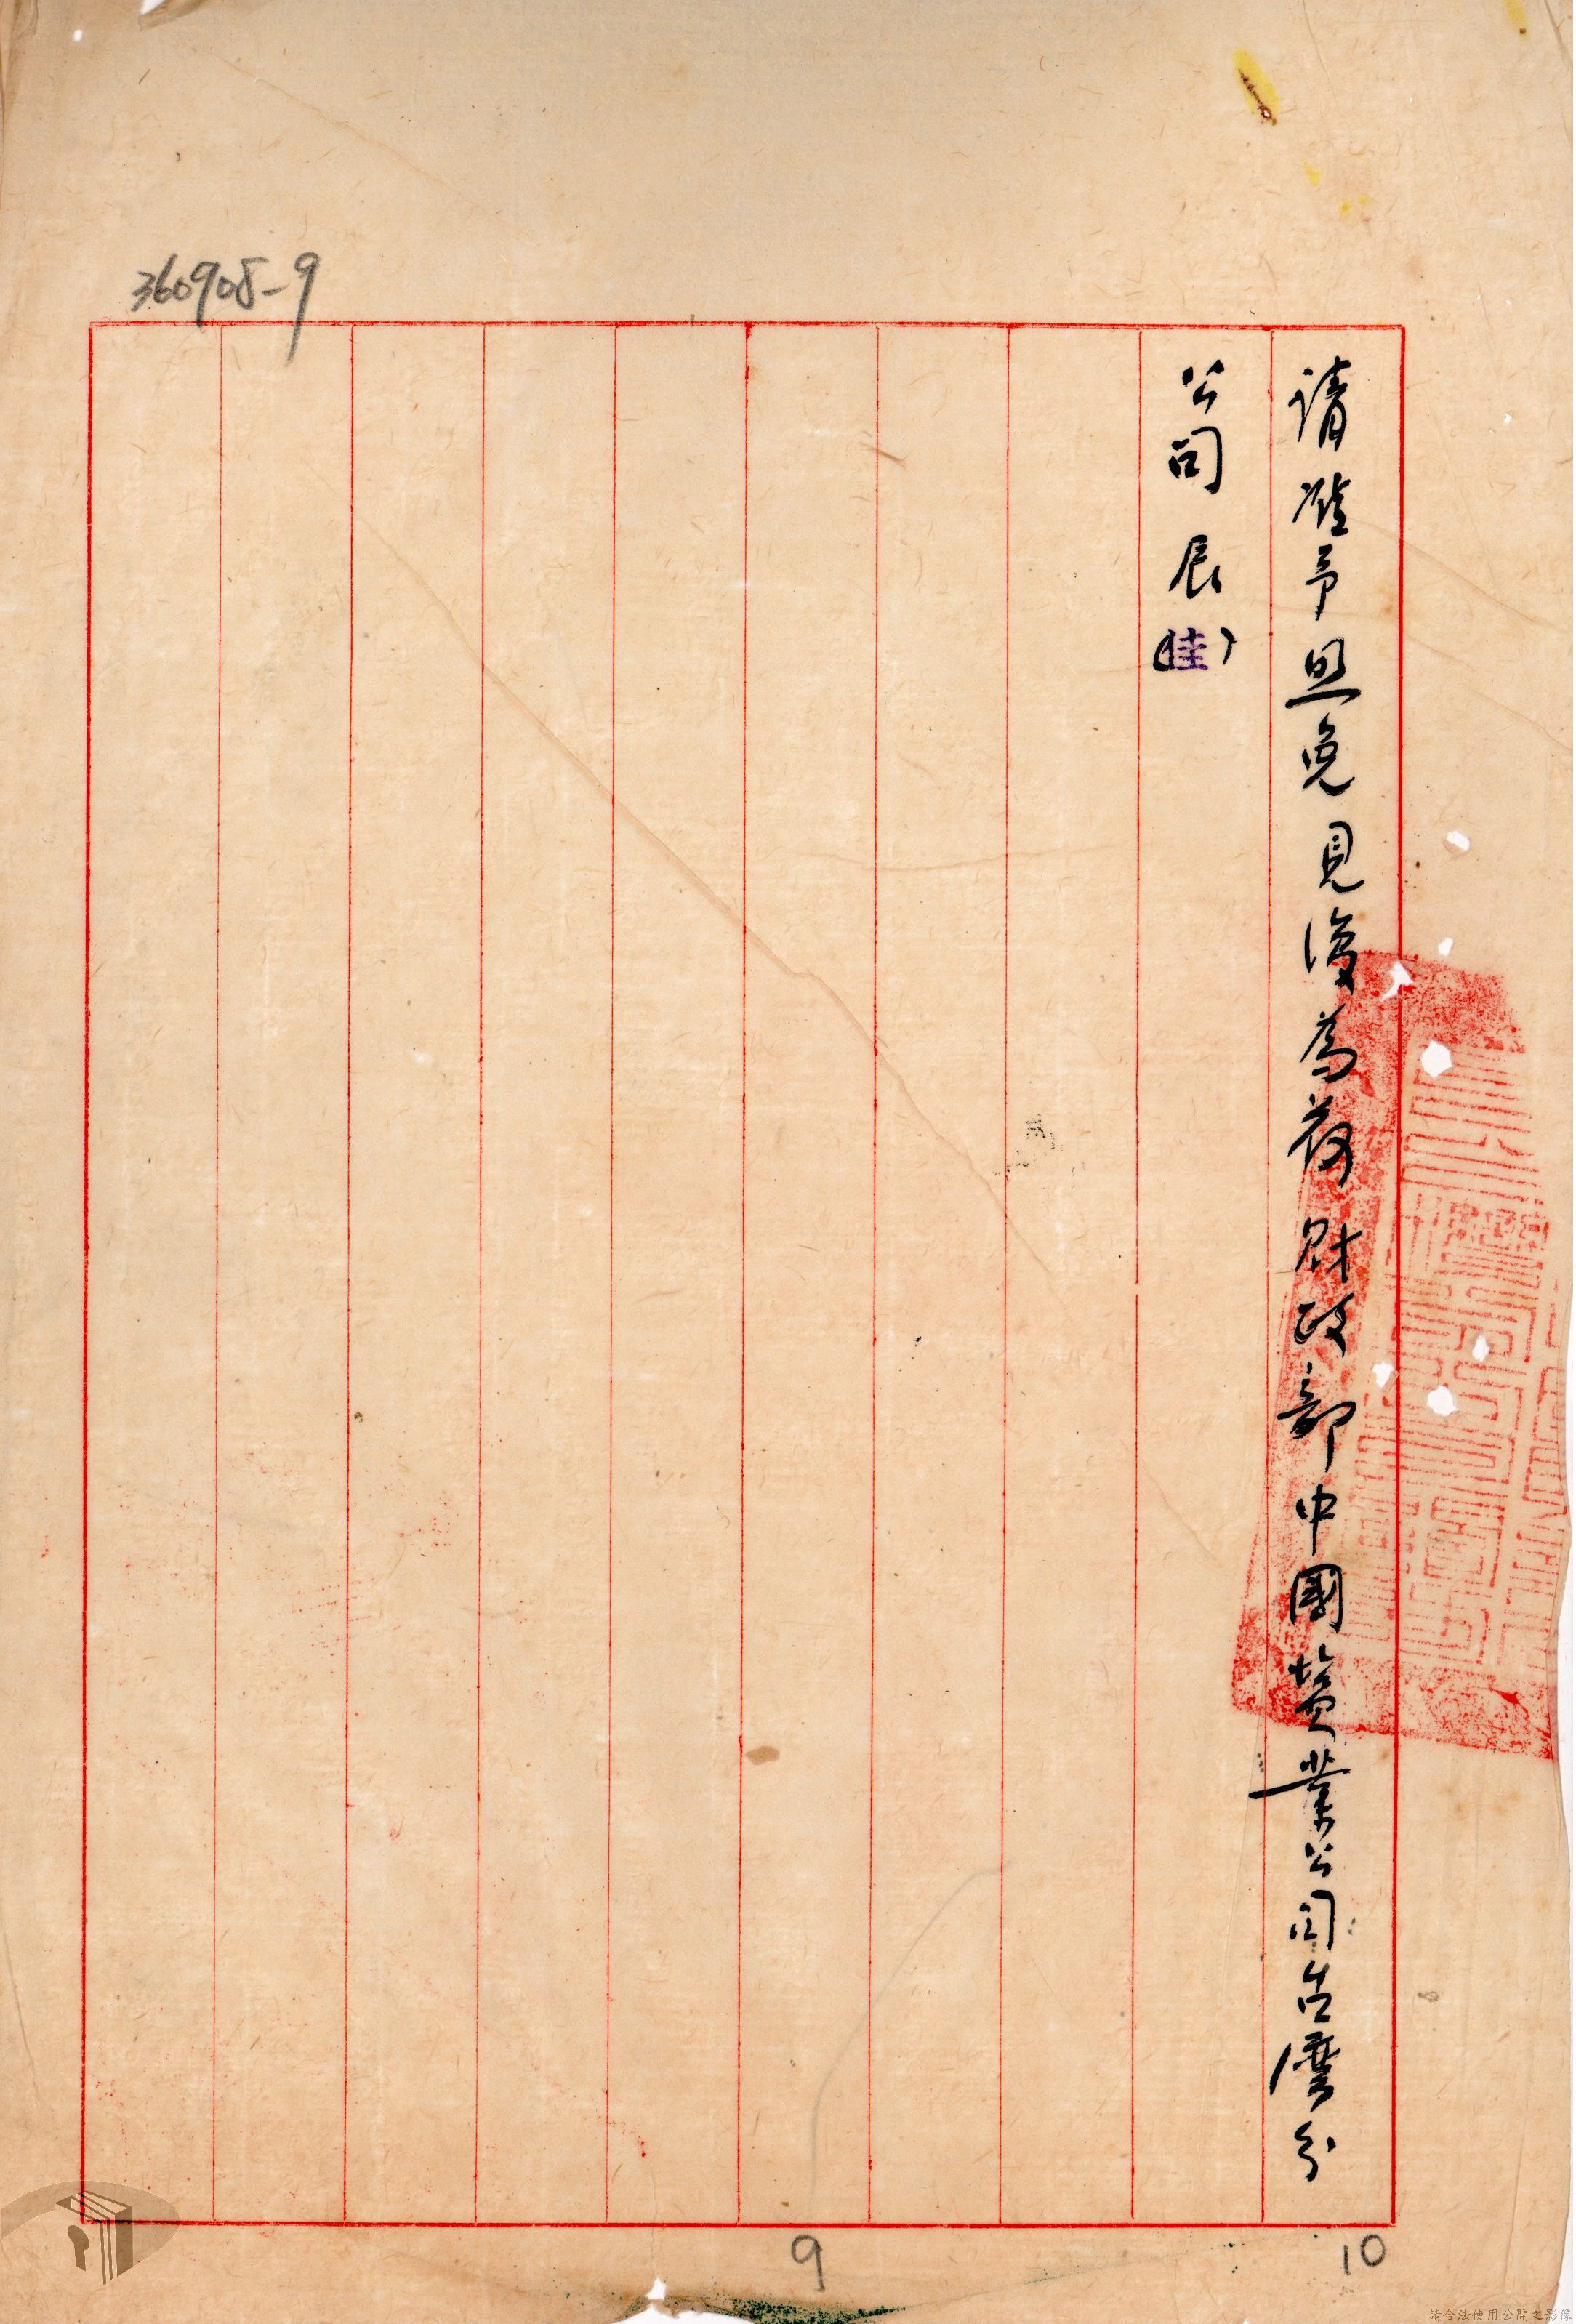 360908-9
請准予照免見復爲荷財政部中國鹽業公司台灣分
公司辰(佳)
9
10
請合法使用公開之影像